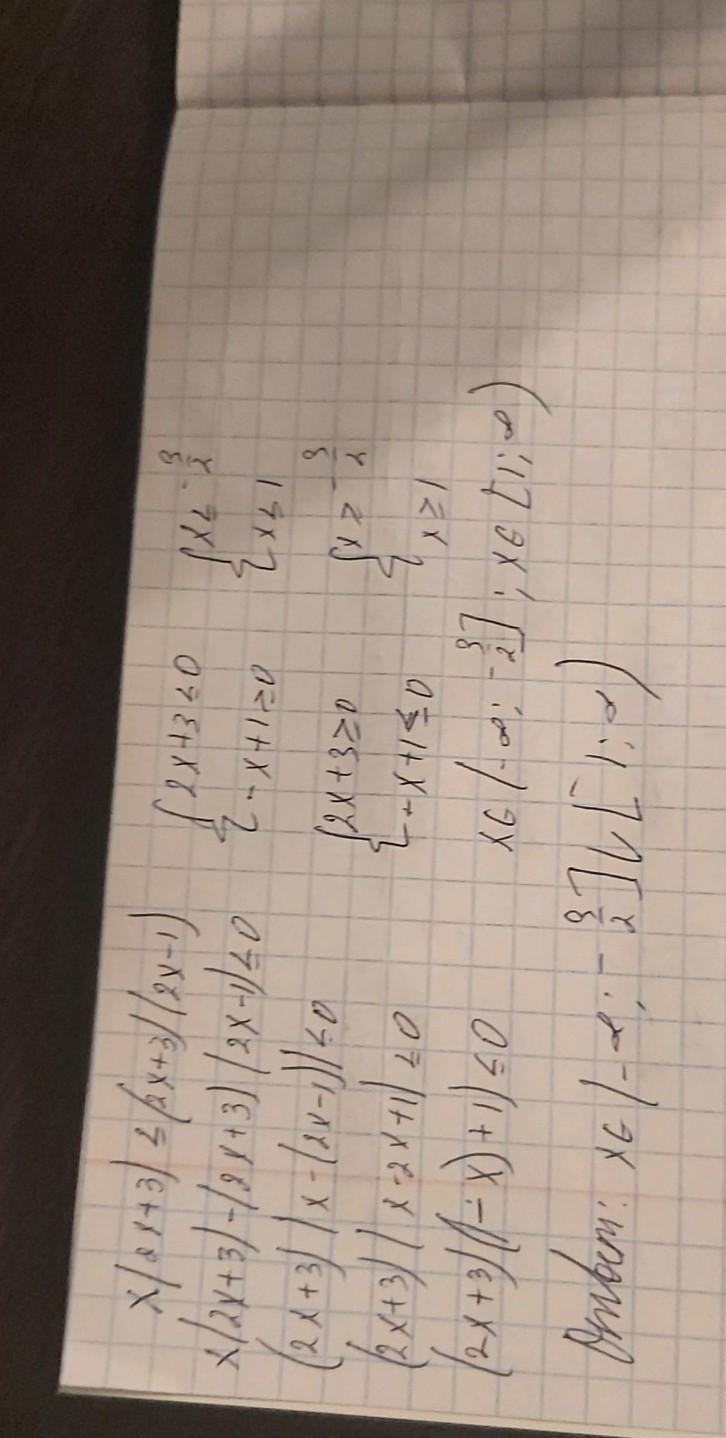 x(2x+3) ≤ (2x+3)(2x-1)
x(2x+3)-(2x+3)(2x-1) ≤ 0
(2x+3)(x-(2x-1)) ≤ 0
(2x+3)(x-2x+1) ≤ 0
(2x+3)((-x)+1) ≤ 0
{2x+3 ≤ 0 {x ≤ -3/2
{-x+1 ≥ 0 {x ≤ 1
{2x+3 ≥ 0 {x ≥ -3/2
{-x+1 ≤ 0 {x ≥ 1
x∈(-∞; -3/2]; x∈[1; ∞)
Ответ: x∈(-∞; -3/2]∪[1; ∞)